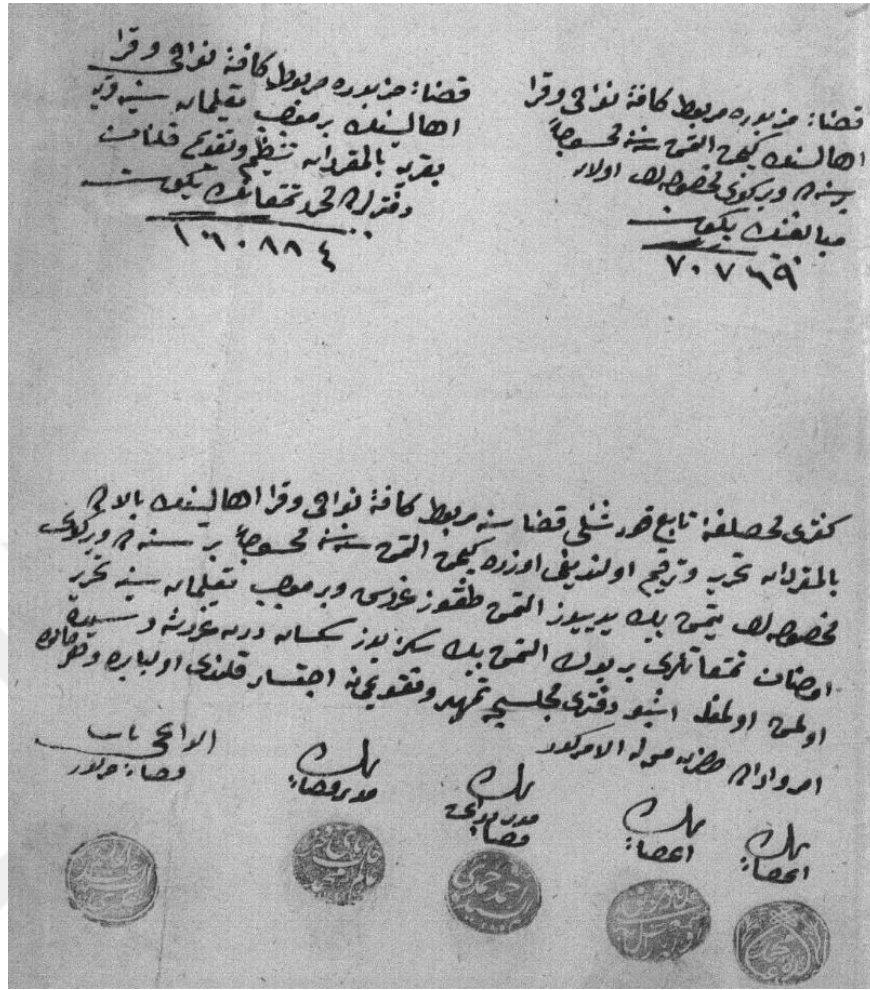 قضاء مزبوره مربوط كافۀ نواحی و قرا
اهالیسنك كچن التمش سنه‌سی محسوباً
بر سنه‌ده ویركوی مخصوصه‌دن اولان
مبالغنك یكونی
٧٠٧٦٩
قضاء مزبوره مربوط كافۀ نواحی و قرا
اهالیسنك بر موجب تعلیمات سنیه قریه
بقریه بالمفردات تنظیم و تقویم قلنان
دفترلری محرر تمتعاتنك یكونی
١٦٠٨٨٤
كنغری محصللغنه تابع قورشنلی قضاسنه مربوط كافۀ نواحی و قرا اهالیسنك بالاده
بالمفردات تحریر و ترقیم اولندیغی اوزره كچن التمش سنه‌سی محسوباً بر سنه‌ده ویركوی
مخصوصه‌دن یتمش بیك یدییوز التمش طقوز غروش و بر موجب تعلیمات سنیه تحریر
اولنان تمتعاتلری بر یوك التمش بیك سكز یوز سكسان درت غروشه رسیده
اولمش اولمغله اشبو دفتری مجلسجه تمهیر و تقدیمنه اجتسار قلندی اولبابده و هر حالده
امر و اراده حضرت من له الامركدر
بنده
اعضاء
بنده
اعضاء
بنده
قضاء
بنده
مدیر قضاء
الداعی نائب
قضاء
احمد حمدی